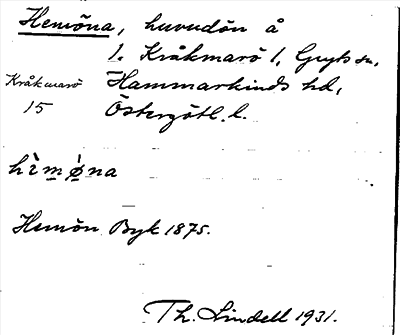 Hemöna, huvudön å
1. Kråkmarö 1, Gryts sn,
Kråkmarö Hammarkinds hd,
15 Östergötl. l.
hèmø̀na
Hemön Byk 1875.
Th. Lindell 1931.